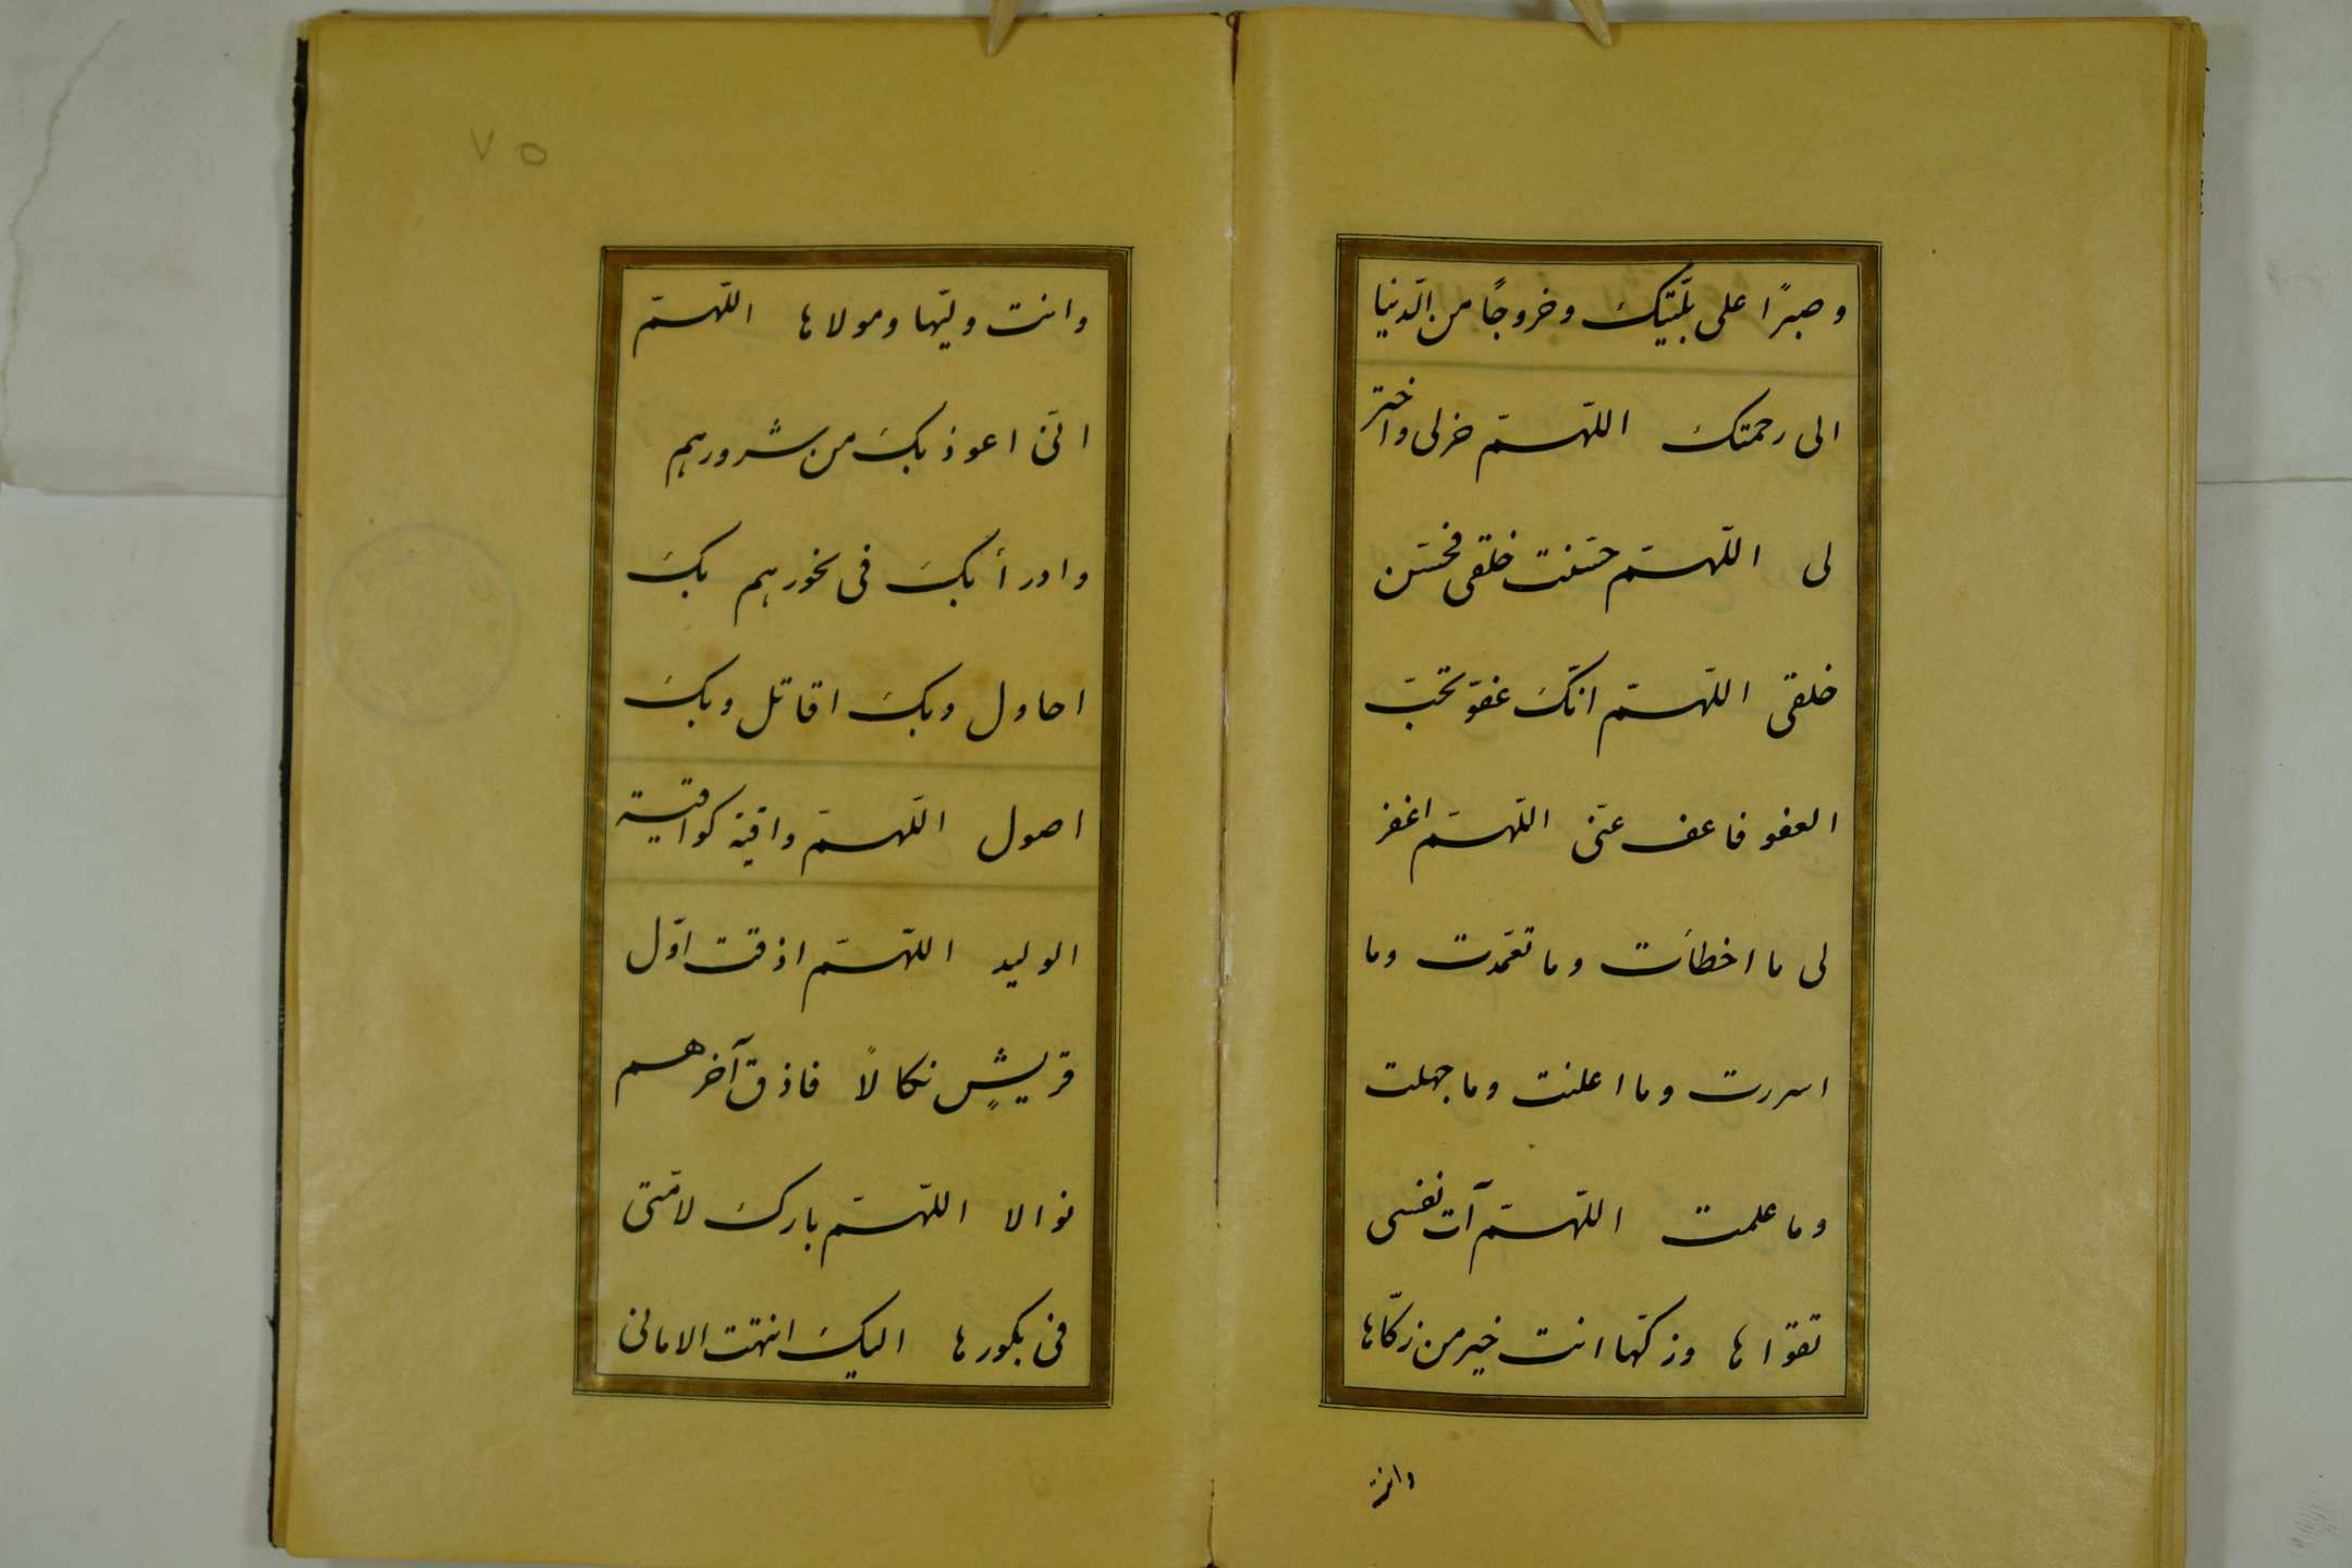 وصبرًا على بلّيتك وخروجًا من الدّنيا
الى رحمتك اللّهمّ خرلى واختر
لى اللّهمّ حسّنت خلقى فحسّن
خلقى اللّهمّ انّك عفوّ تحبّ
العفو فاعف عنّى اللّهمّ اغفر
لى ما اخطأت وما تعمّدت وما
اسررت وما اعلنت وما جهلت
وما علمت اللّهمّ آت نفسى
تقواها وزكّها انت خير من زكّاها
وانت
٧٥
وانت وليّها ومولاها اللّهمّ
انّى اعوذ بك من شرورهم
وادرأ بك فى نحورهم بك
احاول وبك اقاتل وبك
اصول اللّهمّ واقية كواقية
الوليد اللّهمّ اذقت اوّل
قريشٍ نكالاً فاذق آخرهم
نوالا اللّهمّ بارك لامّتى
فى بكورها اليك انتهت الامانى